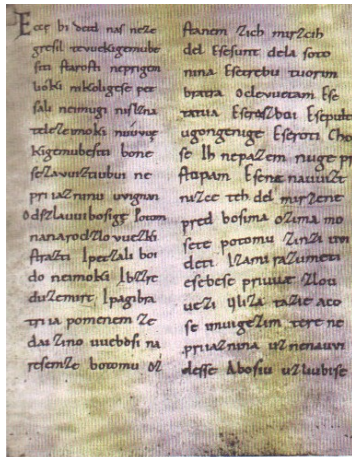 Ecce bi detd naſ neze
greſil tevuekigemube
ſiti ſtaroſti neprigem
lióki nikoligeſe pet
ſali neimugi niſlzna
teleſe imoki nuuvue
kigemubeſiti bone
ſezavuiztiubui ne
priiazninu uvignan
Odſzlauvibosige Potom
nanarodzlovuezki
ſtrazti Ipetzali boi
do neimoki Ibzzre
duzemirt Ipagibra
triia pomenem ze
dai zinouuebosi na
reſemze botomu oz
ſtanem zich mirzcih
del Eſeſunt dela ſoto
nina Eſetrebu tuorim
bratra Oclevuetam Eſe
tatua Eſeraſboi Eſepulti
ugongenige Eſeroti Choi
se Ih nepazem nuge pre
ſtopam Eſene navuizt
nizce teh del mirzene
pred bosima ozima mo
ſete potomu zinzi uvi
deti Izami razumeti
eſebeſe priuuae zlou
vezi Vliza tazie aco
ſe imuigezim tere ne
priiaznina uznenauvi
deſſe Abosiu uzliubiſe